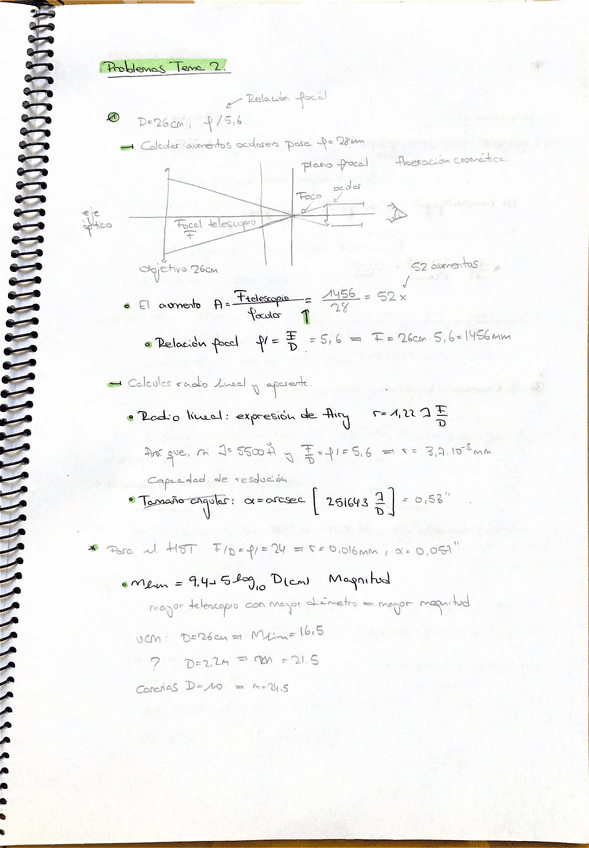 Problemas Tema 2.
Relación focal
① D=26cm, f/5,6
→ Calcular aumentos oculares para f=28mm
plano focal Aberación cromática
Foco ocular
eje óptico
Focal telescopio
F
Objetivo 26cm
52 aumentos
• El aumento A = Ftelescopio / focular = 1456/28 = 52x
• Relación focal f/ = F/D = 5,6 = F = 26cm 5,6 = 1456mm
→ Calcular radio lineal y aparente.
• Radio lineal: expresión de Airy r=1,22 λ F/D
Así que, si λ=5500Å y F/D = f/ = 5,6 = r = 3,7·10⁻³mm
Capacidad de resolución.
• Tamaño angular: α=arcsec [251643 λ/D] = 0,53"
* Para el HST F/D=f/=24 = r=0,016mm, α=0,051"
• mlim = 9.4+5log₁₀ D(cm) Magnitud
mayor telescopio con mayor diámetro = mayor magnitud
UCM: D=26cm = Mlim=16,5
? D=2,2m = m = 21.5
Canarias D=10 = m=24,5